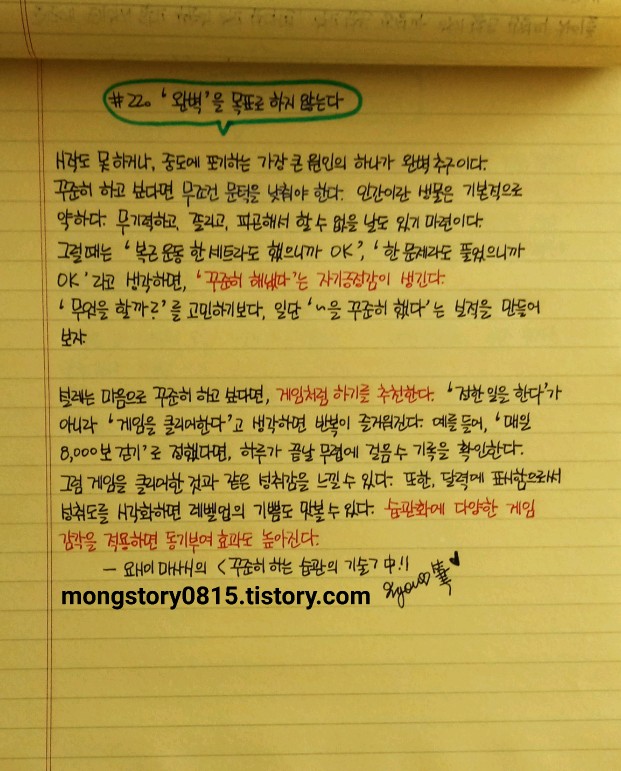 #220 '완벽'을 목표로 하지 않는다
시작도 못 하거나, 중도에 포기하는 가장 큰 원인의 하나가 완벽 추구이다.
꾸준히 하고 싶다면 무조건 문턱을 낮춰야 한다. 인간이란 생물은 기본적으로
약하다. 무기력하고, 졸리고, 피곤해서 할 수 없을 날도 있기 마련이다.
그럴때는 '복근 운동 한 세트라도 했으니까 OK', '한 문제라도 풀었으니까
OK'라고 생각하면, '꾸준히 해냈다'는 자기긍정감이 생긴다.
'무엇을 할까?'를 고민하기보다, 일단 '~을 꾸준히 했다'는 실적을 만들어
보자.
설레는 마음으로 꾸준히 하고 싶다면, 게임처럼 하기를 추천한다. '정한 일을 한다'가
아니라 '게임을 클리어한다'고 생각하면 반복이 즐거워진다. 예를 들어, '매일
8,000보 걷기'로 정했다면, 하루가 끝날 무렵에 걸음 수 기록을 확인한다.
그럼 게임을 클리어한 것과 같은 성취감을 느낄 수 있다. 또한, 달력에 표시함으로써
성취도를 시각화하면 레벨업의 기쁨도 맛볼 수 있다. 습관화에 다양한 게임
감각을 적용하면 동기부여 효과도 높아진다.
- 요해이 마사시의 <꾸준히 하는 습관의 기술> 中.!!
mongstory0815.tistory.com